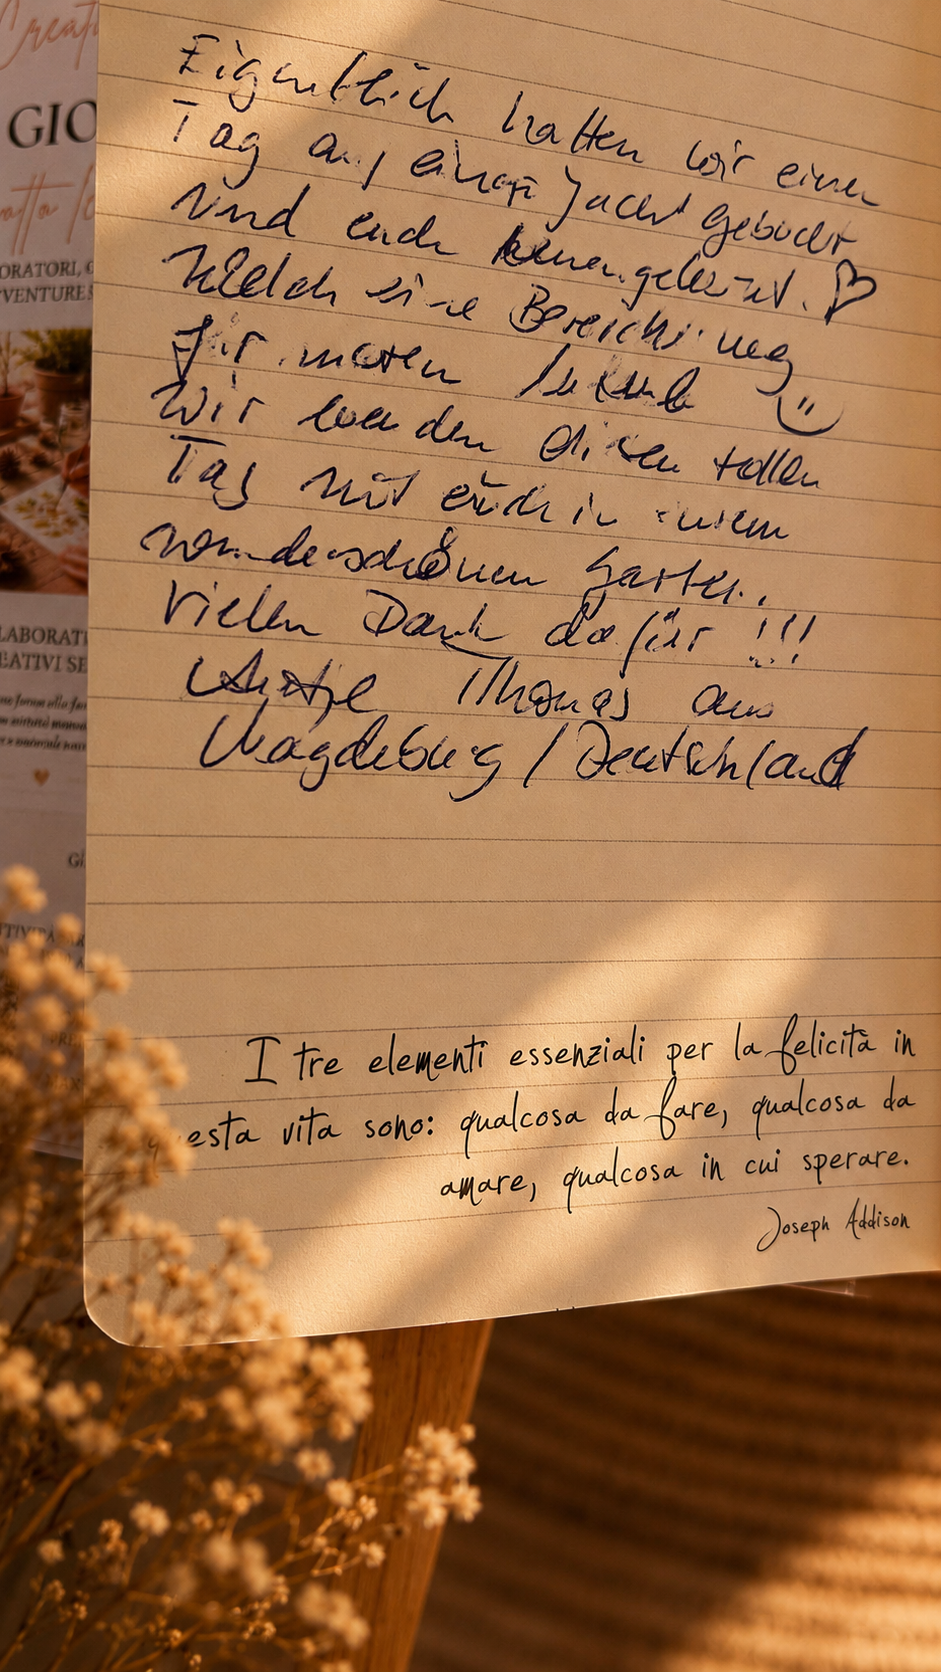 Creat
GIO
ORATORI, C
VVENTURES
LABORATI
EATIVI SE
Eigentlich hatten wir einen
Tag auf einer Jacht gebucht
und euch kennengelernt. ♡
Welch eine Bereicherung
für unseren Urlaub
Wir wurden diesen tollen
Tag mit euch in einem
wunderschönen Garten.
Vielen Dank dafür !!!
Thomas aus
Magdeburg / Deutschland
I tre elementi essenziali per la felicità in
questa vita sono: qualcosa da fare, qualcosa da
amare, qualcosa in cui sperare.
Joseph Addison